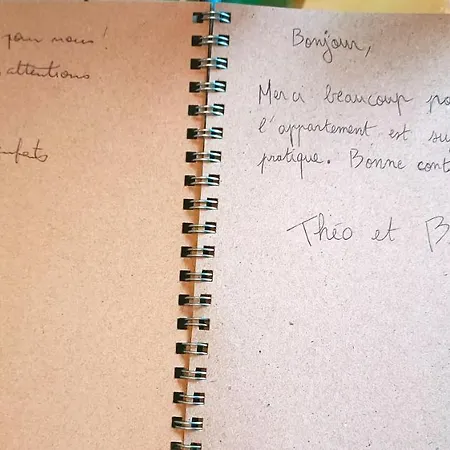 pour nous!
attentions
Bonjour,
Merci beaucoup po
l'appartement est su
pratique. Bonne cont
Théo et B